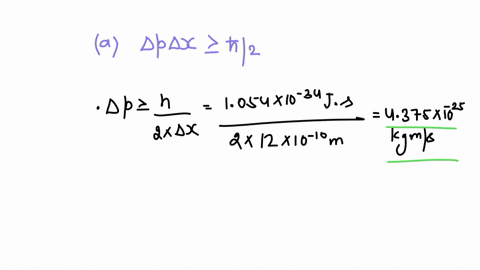 (a) ΔpΔx ≥ ħ/2
. Δp ≥ ħ / 2×Δx = 1.054×10⁻³⁴ J.s / 2×12×10⁻¹⁰ m = 4.375×10⁻²⁵ kgm/s